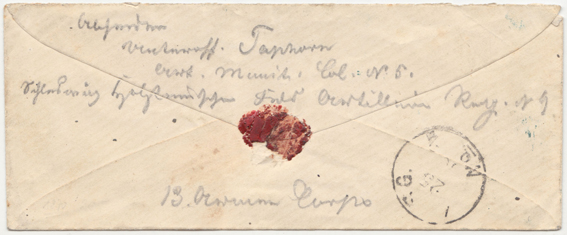 Absender
Unteroff. Taphorn
Art. Munit. Col. No 5.
Schleswig Holsteinischen Feld Artillerie Reg. No 9
13. Armee Corps